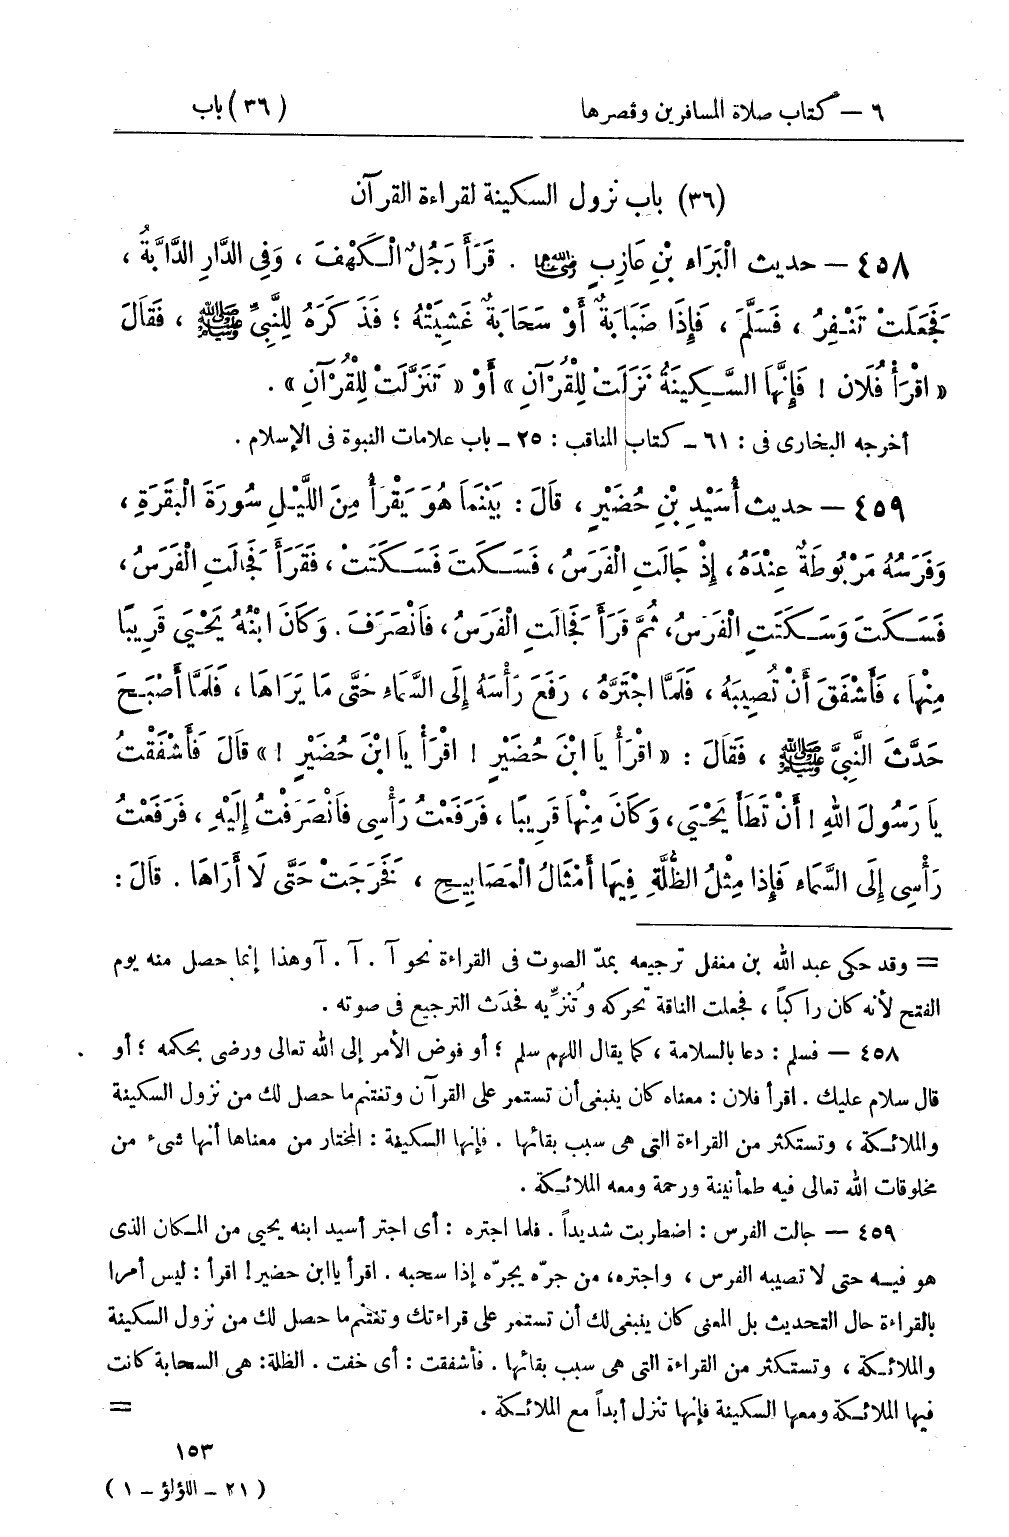 ٦ — كتاب صلاة المسافرين وقصرها (٣٦) باب
(٣٦) باب نزول السكينة لقراءة القرآن
٤٥٨ — حديث الْبَرَاءِ بْنِ عَازِبٍ رضي الله عنهما . قَرَأَ رَجُلٌ الْـكَهْفَ ، وَفِي الدَّارِ الدَّابَّةُ ،
فَجَعَلَتْ تَنْفِرُ ، فَسَلَّمَ ، فَإِذَا ضَبَابَةٌ أَوْ سَحَابَةٌ غَشِيَتْهُ ؛ فَذَ كَرَهُ لِلنَّبِيِّ ﷺ ، فَقَالَ
« اقْرَأْ فُلَان ! فَإِنَّهَا السَّـكِينَةُ نَزَلَتْ لِلْقُرْآنِ » أَوْ « تَنَزَّلَتْ لِلْقُرْآنِ » .
أخرجه البخارى فى : ٦١ ـ كتاب المناقب : ٢٥ ـ باب علامات النبوة فى الإسلام .
٤٥٩ — حديث أُسَيْدِ بْنِ حُضَيْرٍ ، قَالَ : بَيْنَمَا هُوَ يَقْرَأُ مِنَ اللَّيْلِ سُورَةَ الْبَقَرَةِ ،
وَفَرَسُهُ مَرْبُوطَةٌ عِنْدَهُ ، إِذْ جَالَتِ الْفَرَسُ ، فَسَـكَتَ فَسَـكَتَتْ ، فَقَرَأَ فَجَالَتِ الْفَرَسُ ،
فَسَـكَتَ وَسَـكَتَتِ الْفَرَسُ ، ثُمَّ قَرَأَ فَجَالَتِ الْفَرَسُ ، فَانْصَرَفَ . وَكَانَ ابْنُهُ يَحْيَى قَرِيبًا
مِنْهَا ، فَأَشْفَقَ أَنْ تُصِيبَهُ ، فَلَمَّا اجْتَرَّهُ ، رَفَعَ رَأْسَهُ إِلَى السَّمَاءِ حَتَّى مَا يَرَاهَا ، فَلَمَّا أَصْبَحَ
حَدَّثَ النَّبِيَّ ﷺ ، فَقَالَ : « اقْرَأْ يَا ابْنَ حُضَيْرٍ ! اقْرَأْ يَا ابْنَ حُضَيْرٍ ! » قَالَ فَأَشْفَقْتُ
يَا رَسُولَ اللهِ ! أَنْ تَطَأَ يَحْيَى ، وَكَانَ مِنْهَا قَرِيبًا ، فَرَفَعْتُ رَأْسِى فَانْصَرَفْتُ إِلَيْهِ ، فَرَفَعْتُ
رَأْسِى إِلَى السَّمَاءِ فَإِذَا مِثْلُ الظُّلَّةِ فِيهَا أَمْثَالُ الْمَصَابِيحِ ، فَخَرَجَتْ حَتَّى لَا أَرَاهَا . قَالَ :
= وقد حكى عبد الله بن مغفل ترجيعه بمدّ الصوت فى القراءة نحو آ . آ . آ وهذا إنما حصل منه يوم
الفتح لأنه كان راكباً ، فجعلت الناقة تحركه وتُنزِّيه فحدَث الترجيع فى صوته .
٤٥٨ — فسلم : دعا بالسلامة ، كما يقال اللهم سلم ؛ أو فوض الأمر إلى الله تعالى ورضى بحكمه ؛ أو
قال سلام عليك . اقرأ فلان : معناه كان ينبغى أن تستمر على القرآن وتغتنم ما حصل لك من نزول السكينة
والملائـكة ، وتستكثر من القراءة التى هى سبب بقائها . فإنها السكينة : المختار من معناها أنها شىء من
مخلوقات الله تعالى فيه طمأنينة ورحمة ومعه الملائـكة .
٤٥٩ — جالت الفرس : اضطربت شديداً . فلما اجتره : أى اجتر أسيد ابنه يحيى من المـكان الذى
هو فيـه حتى لا تصيبه الفرس ، واجتره، من جرّه يجرّه إذا سحبه . اقرأ يا ابن حضير! اقرأ : ليس أمرا
بالقراءة حال التحديث بل المعنى كان ينبغى لك أن تستمر على قراءتك وتغتنم ما حصل لك من نزول السكينة
والملائـكة ، وتستكثر من القراءة التى هى سبب بقائها . فأشفقت : أى خفت . الظلة: هى السحابة كانت
فيها الملائـكة ومعها السكينة فإنها تنزل أبداً مع الملائـكة . =
١٥٣
( ٢١ – اللؤلؤ – ١ )